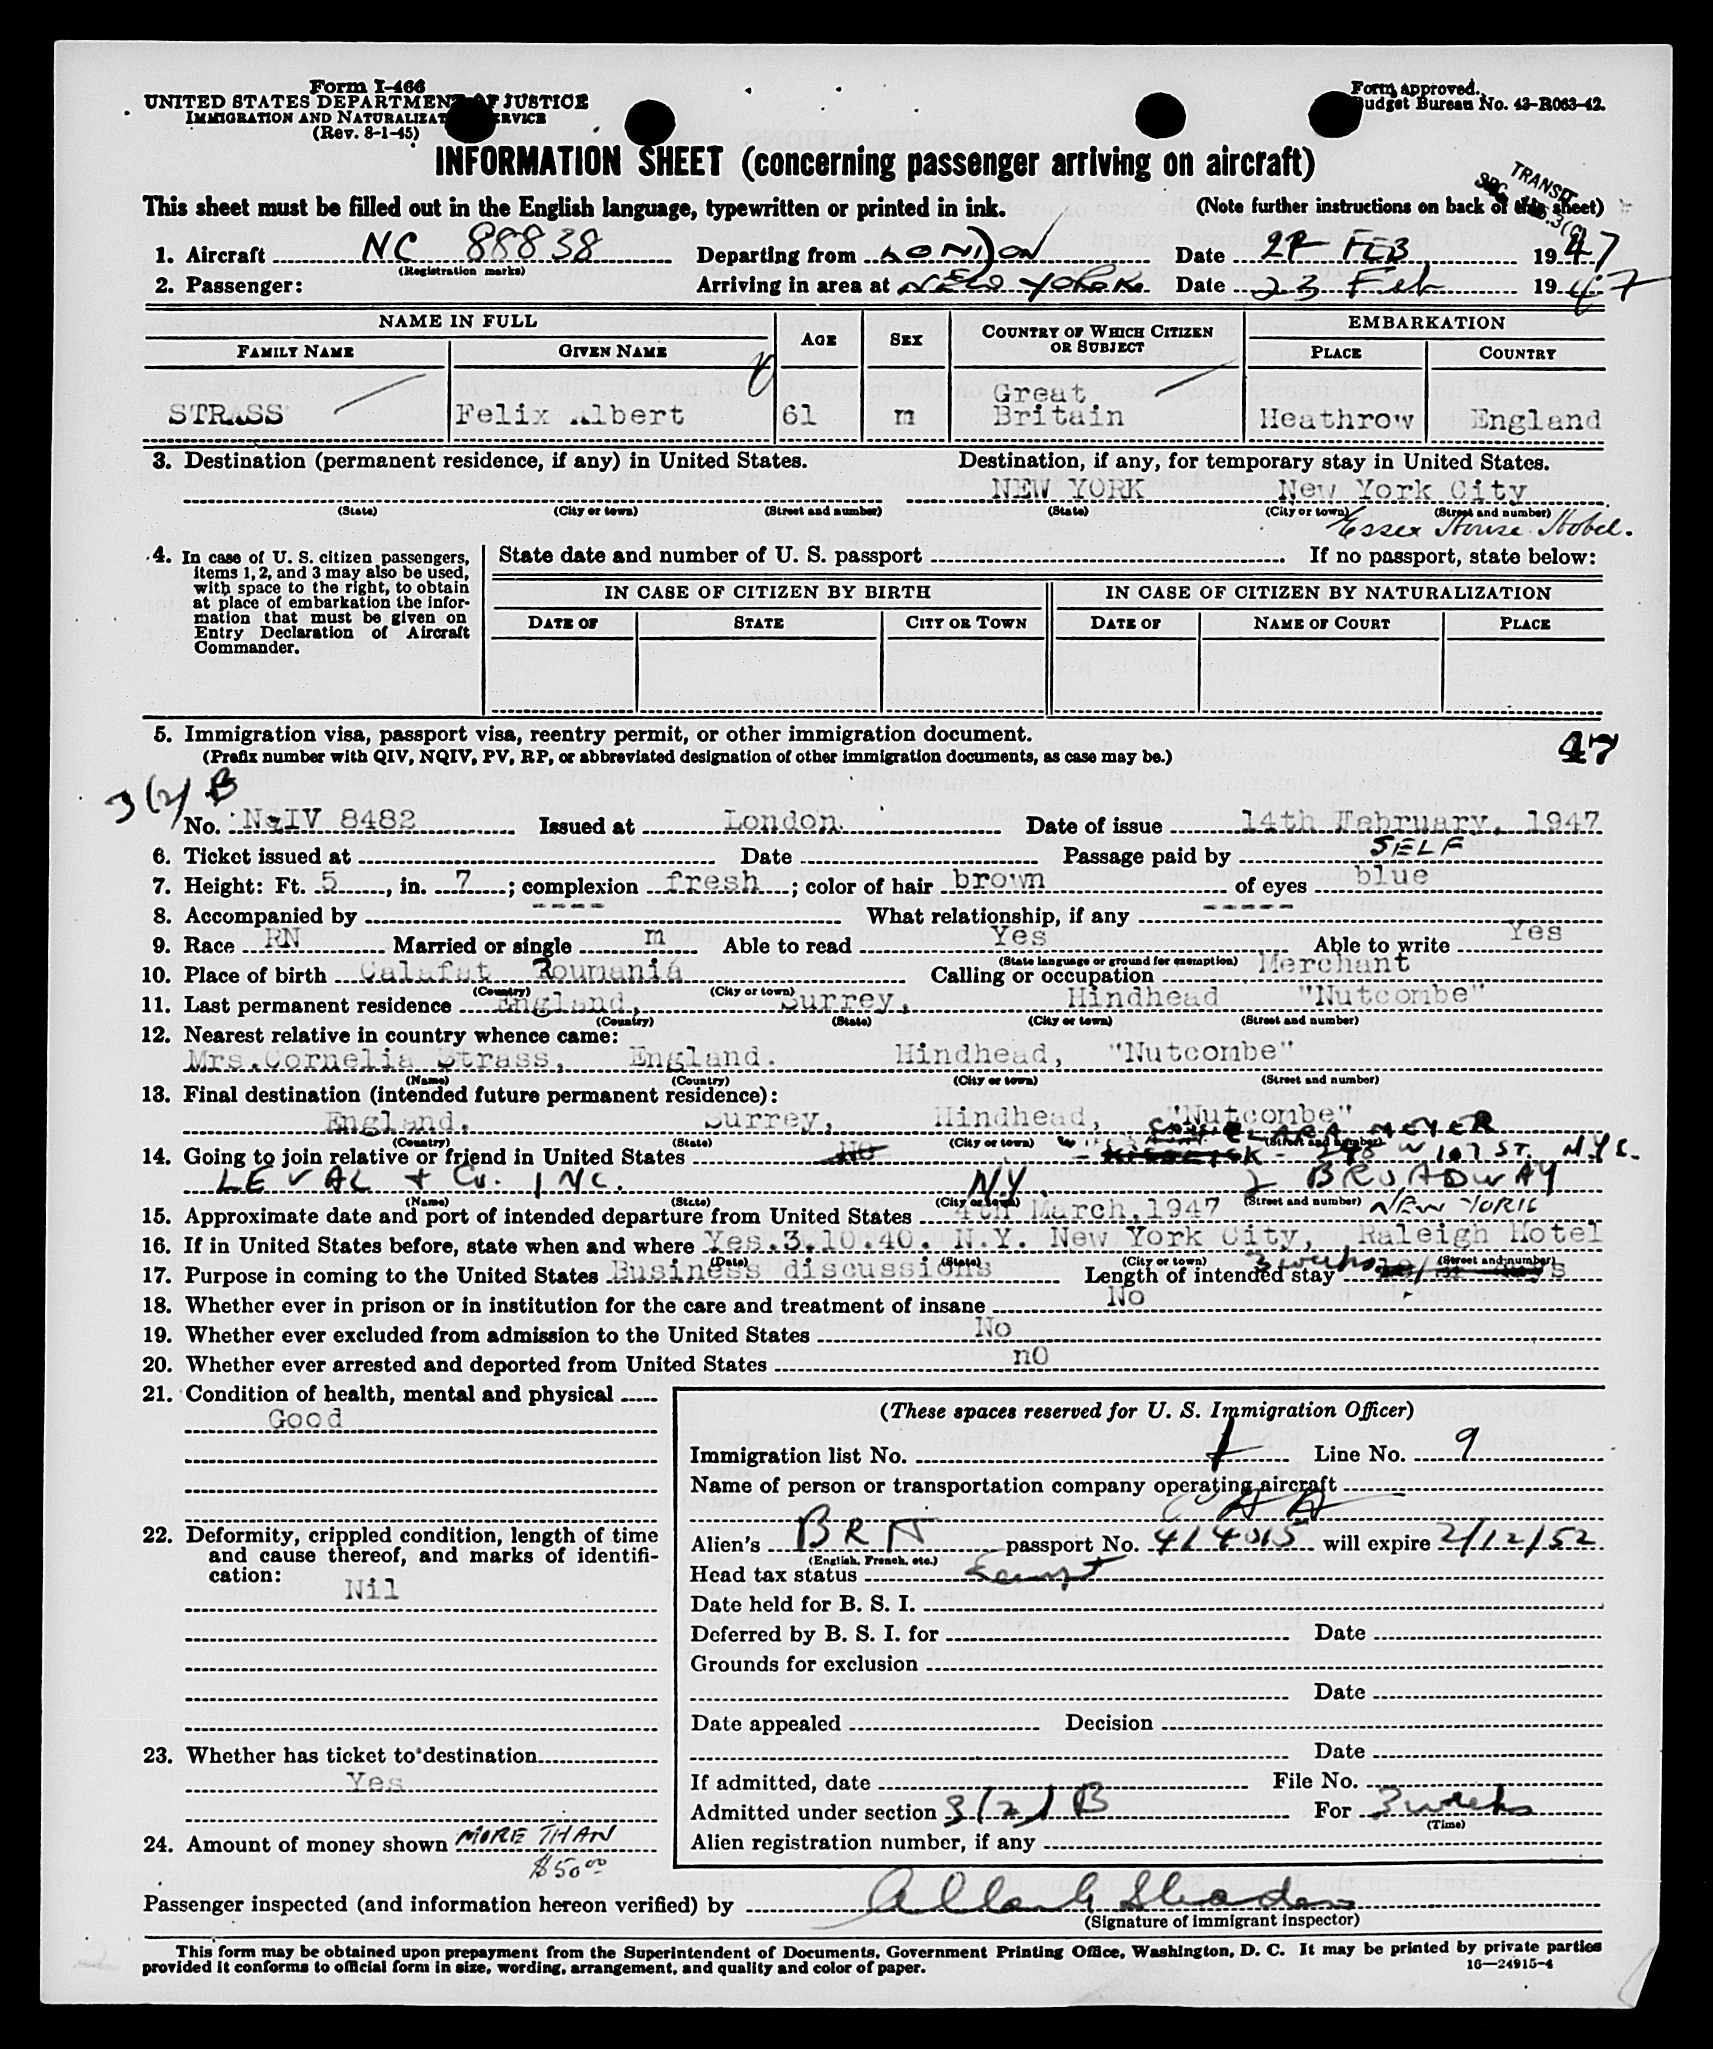 Form I-466
UNITED STATES DEPARTMENT OF JUSTICE
IMMIGRATION AND NATURALIZATION SERVICE
(Rev. 8-1-45)
Form approved.
Budget Bureau No. 43-R063-42.
INFORMATION SHEET (concerning passenger arriving on aircraft)
TRANSIT
This sheet must be filled out in the English language, typewritten or printed in ink. (Note further instructions on back of this sheet)
SEC. 3(
1. Aircraft NC 88838 Departing from LONDON Date FEB 1947
(Registration marks)
2. Passenger: Arriving in area at NEW YORK Date 23 Feb 1947
NAME IN FULL
FAMILY NAME GIVEN NAME AGE SEX COUNTRY OF WHICH CITIZEN OR SUBJECT EMBARKATION PLACE COUNTRY
STRASS Felix Albert 61 m Great Britain Heathrow England
3. Destination (permanent residence, if any) in United States. Destination, if any, for temporary stay in United States.
NEW YORK New York City
(State) (City or town) (Street and number) (State) (City or town) (Street and number)
Essex House Hotel.
4. In case of U. S. citizen passengers, items 1, 2, and 3 may also be used, with space to the right, to obtain at place of embarkation the information that must be given on Entry Declaration of Aircraft Commander.
State date and number of U. S. passport If no passport, state below:
IN CASE OF CITIZEN BY BIRTH IN CASE OF CITIZEN BY NATURALIZATION
DATE OF STATE CITY OR TOWN DATE OF NAME OF COURT PLACE
5. Immigration visa, passport visa, reentry permit, or other immigration document.
(Prefix number with QIV, NQIV, PV, RP, or abbreviated designation of other immigration documents, as case may be.)
47
3(2) B
No. NqIV 8482 Issued at London. Date of issue 14th February, 1947
6. Ticket issued at Date Passage paid by SELF
7. Height: Ft. 5, in. 7; complexion fresh; color of hair brown of eyes blue
8. Accompanied by ---- What relationship, if any -----
9. Race RN Married or single m Able to read Yes Able to write Yes
(State language or ground for exemption)
10. Place of birth Calafat Roumania Calling or occupation Merchant
(Country) (City or town)
11. Last permanent residence England, Surrey, Hindhead "Nutcombe"
(Country) (State) (City or town) (Street and number)
12. Nearest relative in country whence came:
Mrs.Cornelia Strass, England. Hindhead, "Nutcombe"
(Name) (Country) (City or town) (Street and number)
13. Final destination (intended future permanent residence):
England. Surrey, Hindhead, "Nutcombe"
(Country) (State) (City or town) (Street and number)
CLARA MEYER
14. Going to join relative or friend in United States No W 107 ST. NYC.
LEVAL & Co. INC. NY. 2 BROADWAY
(Name) (State) (City or town) (Street and number)
NEW YORK
15. Approximate date and port of intended departure from United States 4th March,1947
16. If in United States before, state when and where Yes.3.10.40. N.Y. New York City, Raleigh Hotel
(Date) (State) (City or town) (Street and number)
17. Purpose in coming to the United States Business discussions Length of intended stay 3 weeks
18. Whether ever in prison or in institution for the care and treatment of insane No
19. Whether ever excluded from admission to the United States No
20. Whether ever arrested and deported from United States nO
21. Condition of health, mental and physical
Good
22. Deformity, crippled condition, length of time and cause thereof, and marks of identification:
Nil
23. Whether has ticket to destination
Yes
24. Amount of money shown MORE THAN
$50.00
(These spaces reserved for U. S. Immigration Officer)
Immigration list No. 1 Line No. 9
Name of person or transportation company operating aircraft
Alien's passport No. 414015 will expire 2/12/52
(English, French, etc.)
Head tax status Exempt
Date held for B. S. I.
Deferred by B. S. I. for Date
Grounds for exclusion
Date
Date appealed Decision
Date
If admitted, date File No.
Admitted under section 3(2) B For 3 weeks
(Time)
Alien registration number, if any
Passenger inspected (and information hereon verified) by
(Signature of immigrant inspector)
This form may be obtained upon prepayment from the Superintendent of Documents, Government Printing Office, Washington, D. C. It may be printed by private parties
provided it conforms to official form in size, wording, arrangement, and quality and color of paper.
16—24915-4